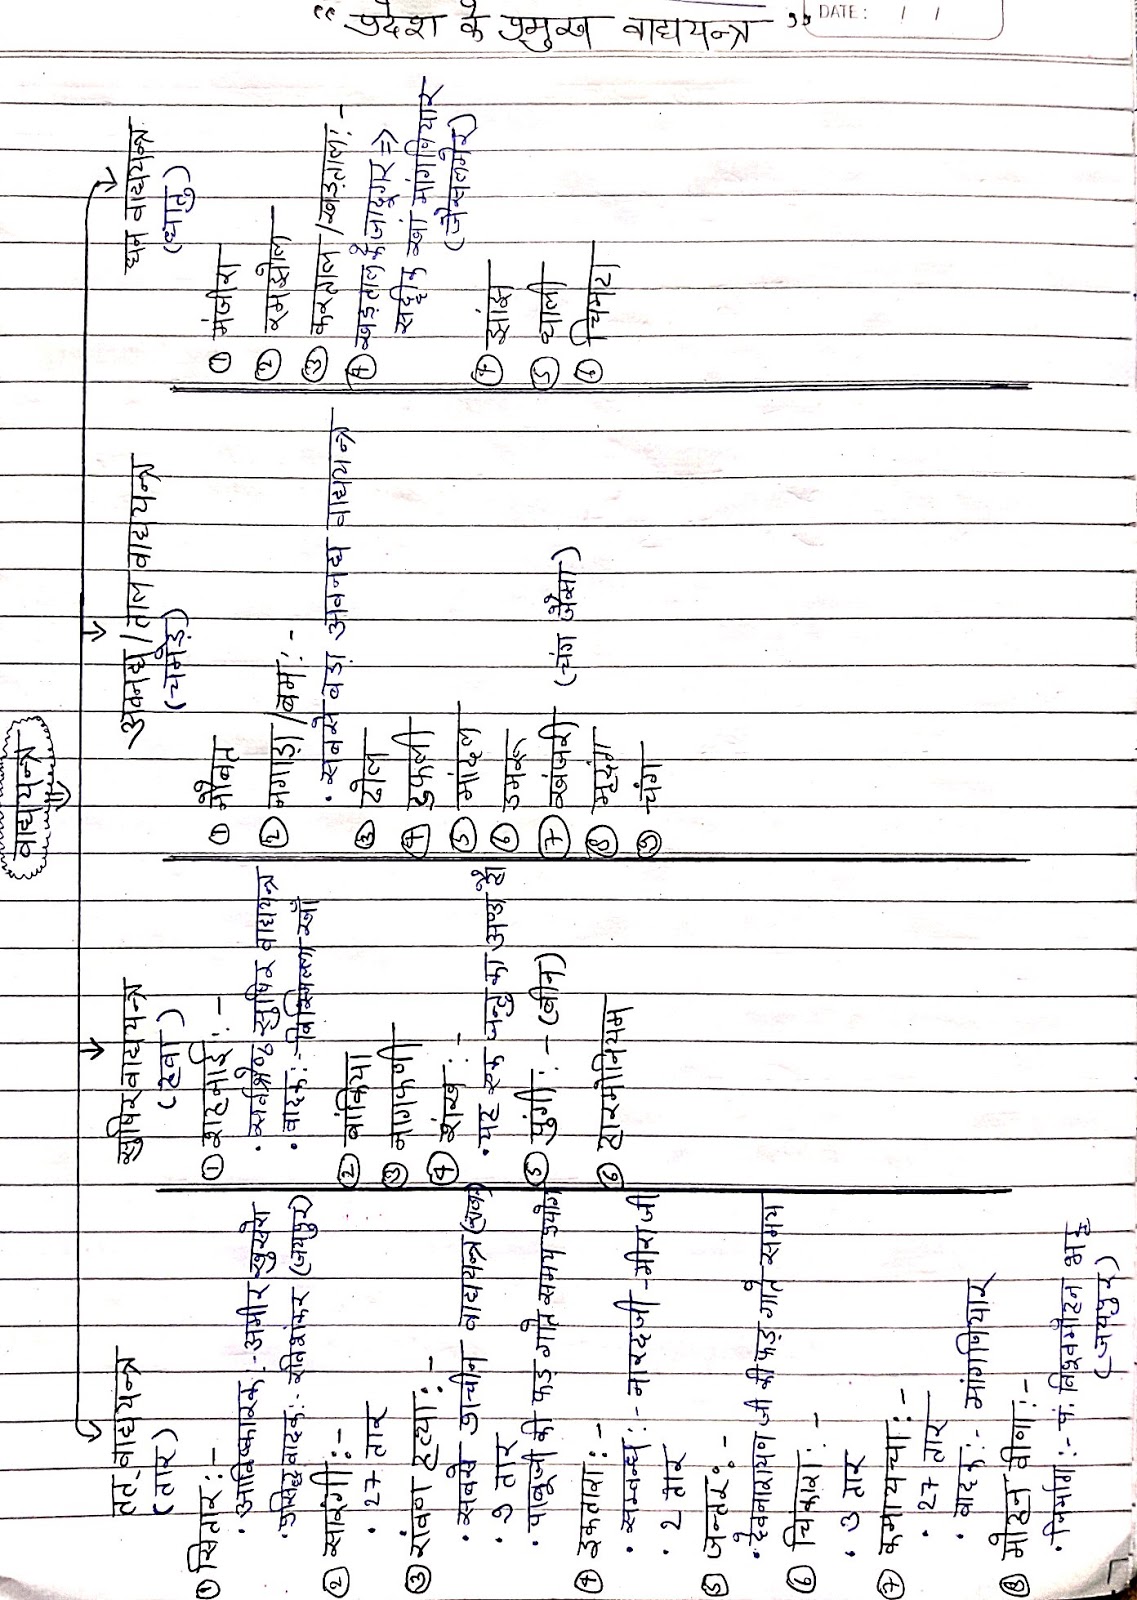 DATE: / /
“ प्रदेश के प्रमुख वाद्ययन्त्र ”
वाद्ययन्त्र
तत् वाद्ययन्त्र
(तार)
① सितार :-
· आविष्कारक :- अमीर खुसरो
· प्रसिद्ध वादक :- रविशंकर (जयपुर)
② सारंगी :-
· 27 तार
③ रावण हत्था :-
· सबसे प्राचीन वाद्ययन्त्र
· 9 तार
· पाबूजी की फड़ गाते समय प्रयोग
④ इकतारा :-
· सम्बन्ध :- नारदजी - मीरा जी
· 2 तार
⑤ जन्तर :-
· देवनारायण जी की फड़ गाते समय
⑥ चिकारा :-
· 3 तार
⑦ कमायच्या :-
· 27 तार
· वादक :- मांगणियार
⑧ मोहन वीणा :-
· निर्माण :- पं. विश्वमोहन भट्ट
(जयपुर)
सुषिर वाद्ययन्त्र
(हवा)
① शहनाई :-
· सर्वश्रेष्ठ सुषिर वाद्ययन्त्र
· वादक :- बिस्मिल्ला खाँ
② बांकिया
③ नागफणी
④ शंख :-
· यह एक जन्तु का अण्ड है
⑤ पुंगी :- (बीन)
⑥ हारमोनियम
अवनद्य / ताल वाद्ययन्त्र
(चमड़े)
① नौबत
② नगाड़ा / बम :-
· सबसे बड़ा अवनद्य वाद्ययन्त्र
③ ढोल
④ ढफली
⑤ मांदल
⑥ डमरू
⑦ खंजरी (चंग जैसा)
⑧ मृदंग
⑨ चंग
घन वाद्ययन्त्र
(धातु)
① मंजीरा
② रमझौल
③ करताल / खड़ताल :-
④ खड़ताल के जादूगर ⇒
सद्दीक खां मांगणियार
(जैसलमेर)
④ झांझ
⑤ थाली
⑥ चिमटा